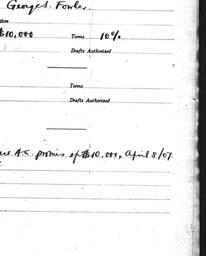 George S. Fowler
tion
$10,000 Terms 10%
Drafts Authorized
Terms
Drafts Authorized
promis of $10,000, April 8/07